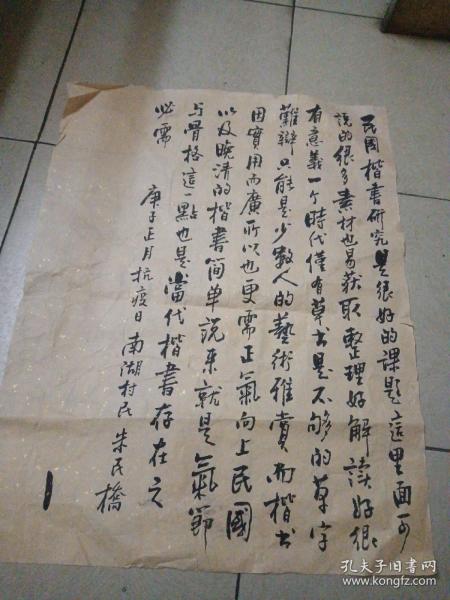 民國楷書研究是很好的課題這里面可
說的很多素材也易获取整理好解讀好很
有意義一个时代僅有草书是不够的草字
難辯只能是少數人的藝術雅賞而楷书
因實用而廣所以也更需正氣向上民國
以及晚清的楷書简单說来就是氣節
与骨格這一點也是當代楷書存在之
必需
庚子正月抗疫日 南湖村民 朱民橋
孔夫子旧书网
www.kongfz.com